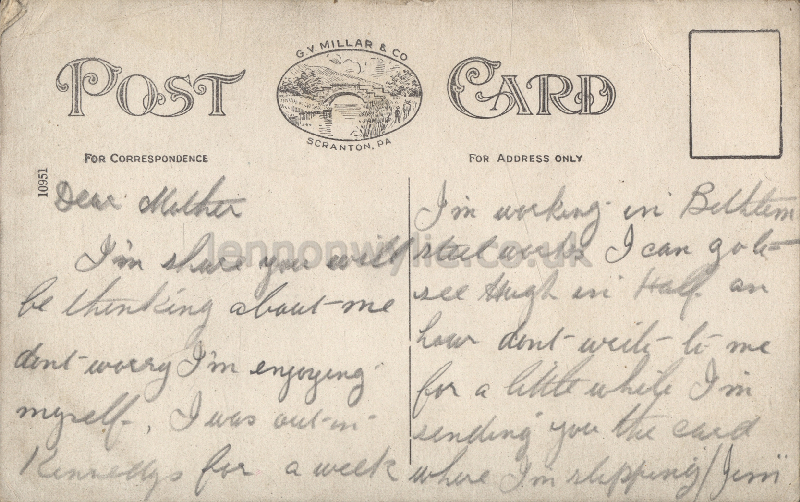 G. V. MILLAR & CO
POST CARD
SCRANTON, PA
FOR CORRESPONDENCE
FOR ADDRESS ONLY
10951
Dear Mother
I'm shure you will
be thinking about me
dont worry I'm enjoying
myself. I was out in
Kennedys for a week
I'm working in Bethlem
steel works I can go to
see Hugh in Half an
hour dont write to me
for a little while I'm
sending you the card
where I'm slipping/
lennonwylie.co.uk